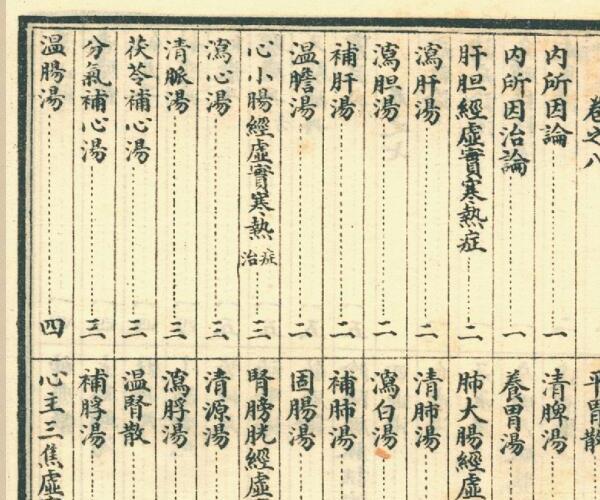 卷之八
内所因論 一
内所因治論 一
肝胆經虛實寒熱症 二
瀉肝湯 二
瀉胆湯 二
補肝湯 二
温膽湯 二
心小腸經虛實寒熱症治 三
瀉心湯 三
清脈湯 三
茯苓補心湯 三
分氣補心湯 三
温腸湯 四
平胃散
清脾湯
養胃湯
肺大腸經虛
清肺湯
瀉白湯
補肺湯
固腸湯
腎膀胱經虛
清源湯
瀉脬湯
温腎散
補脬湯
心主三焦虛